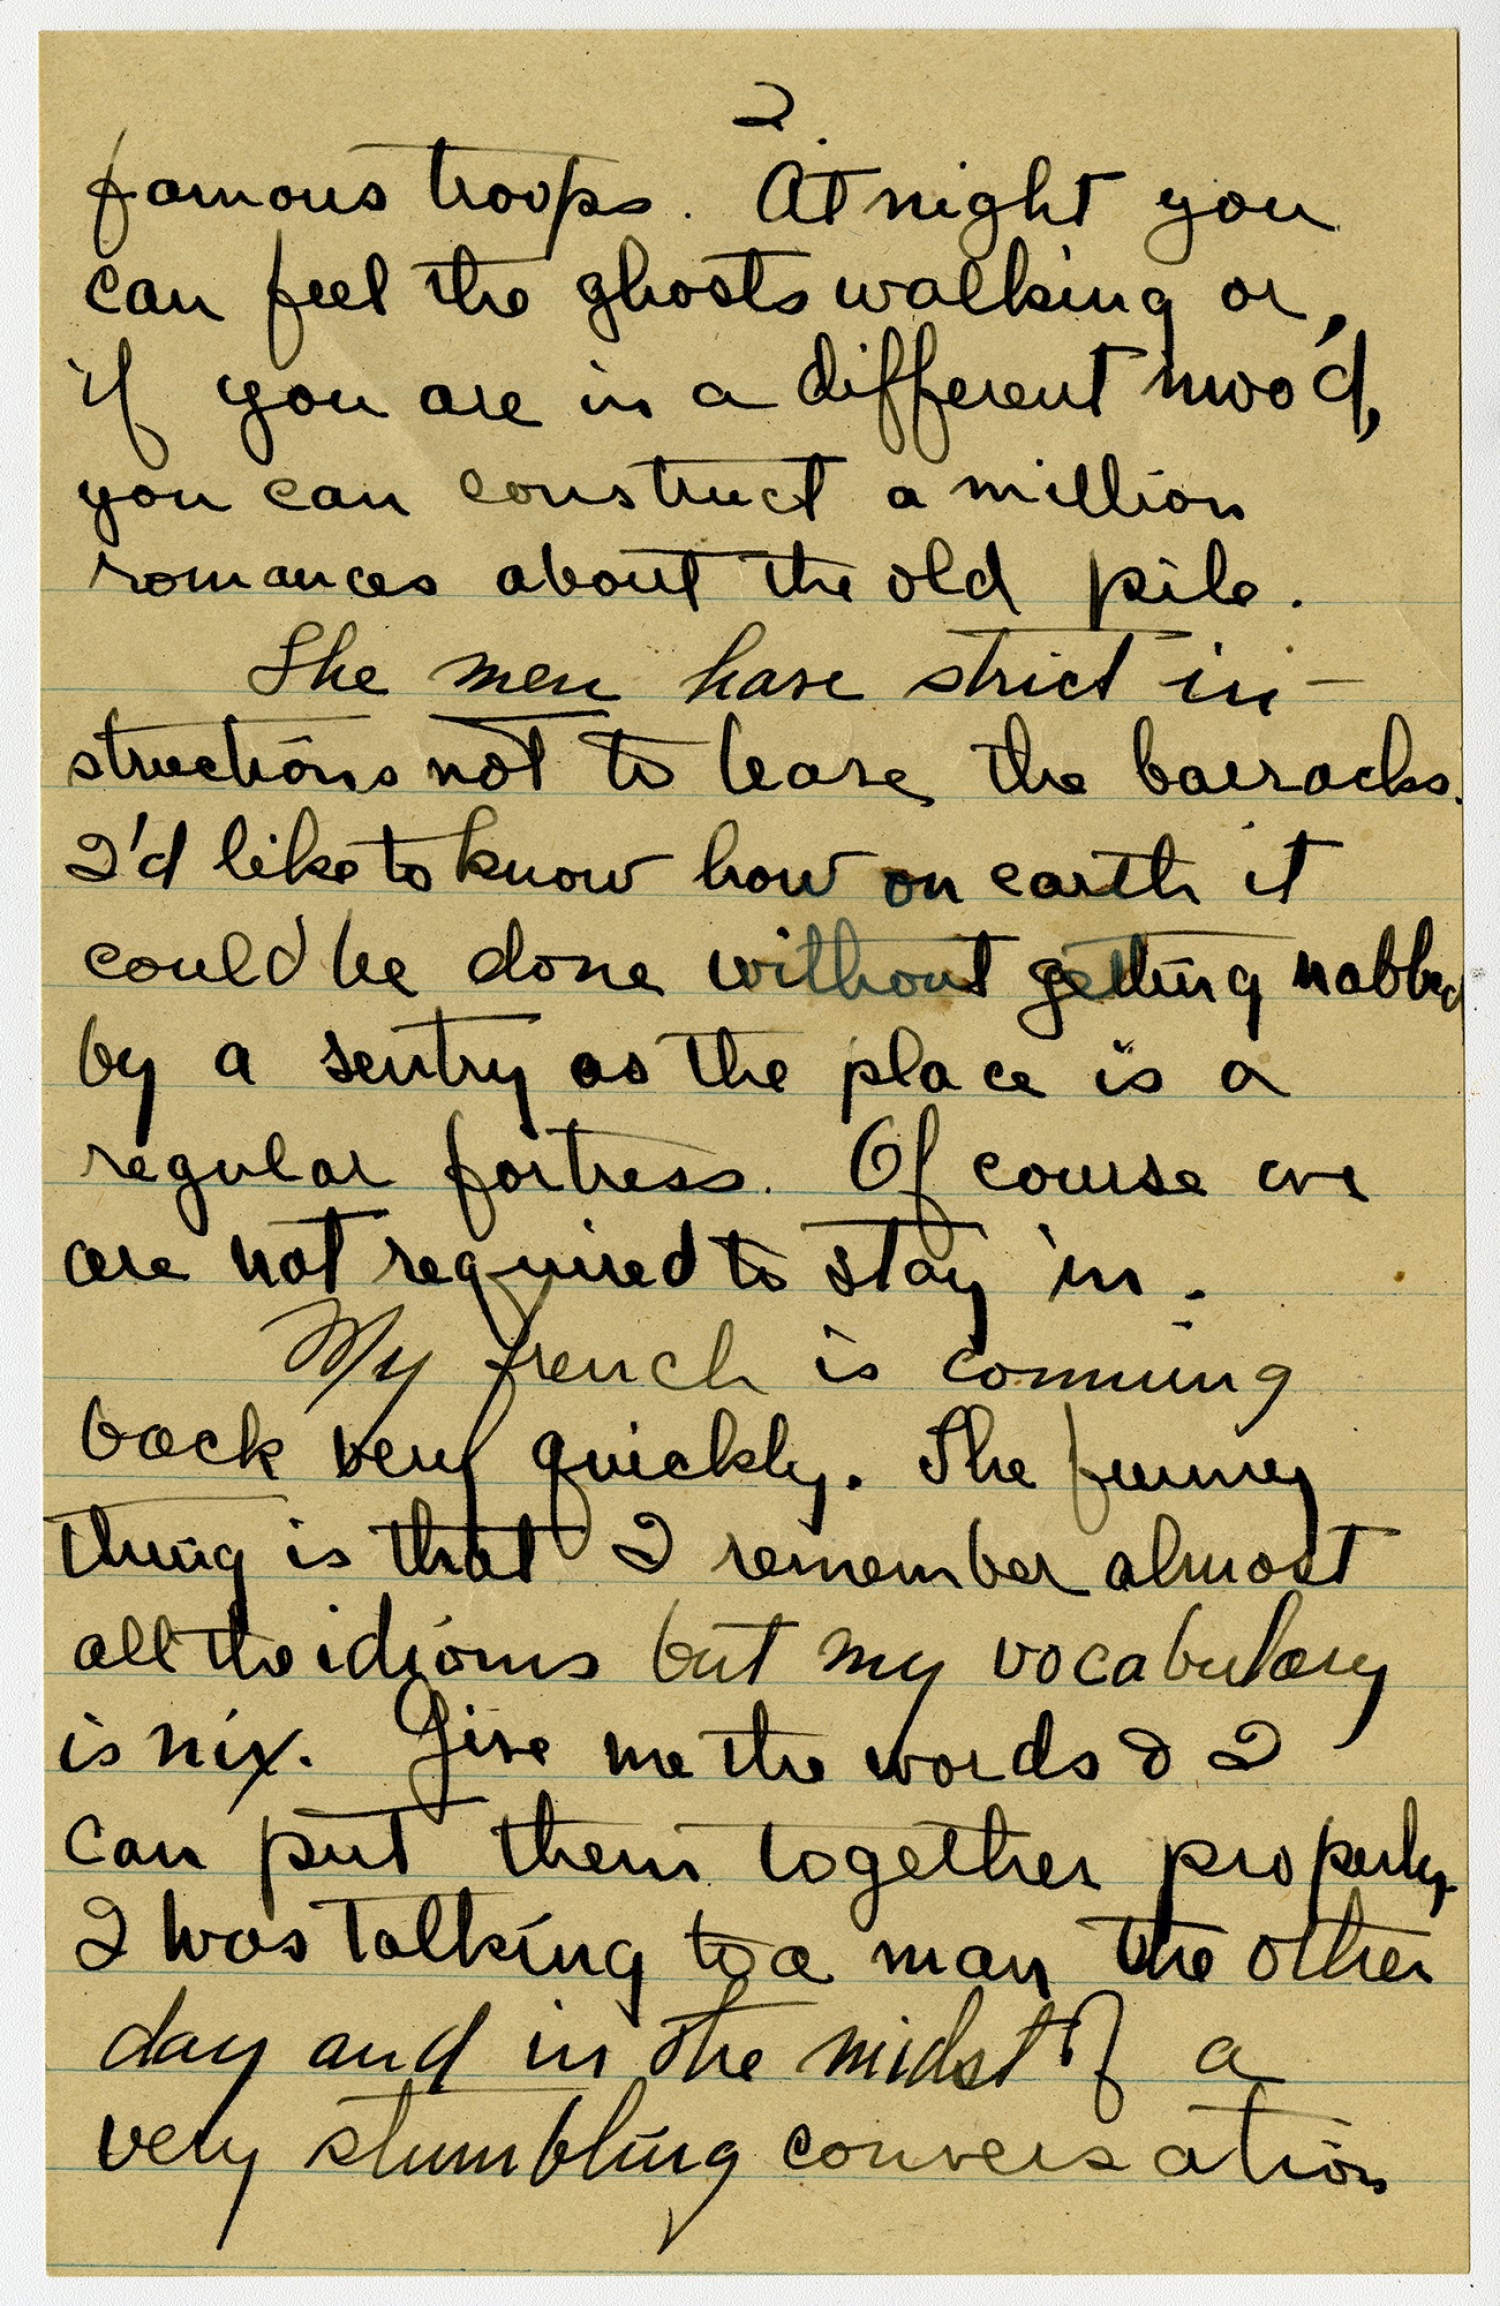 2.
famous troops. At night you
can feel the ghosts walking or,
if you are in a different mood,
you can construct a million
romances about the old pile.
The men have strict in-
structions not to leave the barracks.
I'd like to know how on earth it
could be done without getting nabbed
by a sentry as the place is a
regular fortress. Of course we
are not required to stay in.
My french is comming
back very quickly. The funny
thing is that I remember almost
all the idioms but my vocabulary
is nix. Give me the words & I
can put them together properly.
I was talking to a man the other
day and in the midst of a
very stumbling conversation